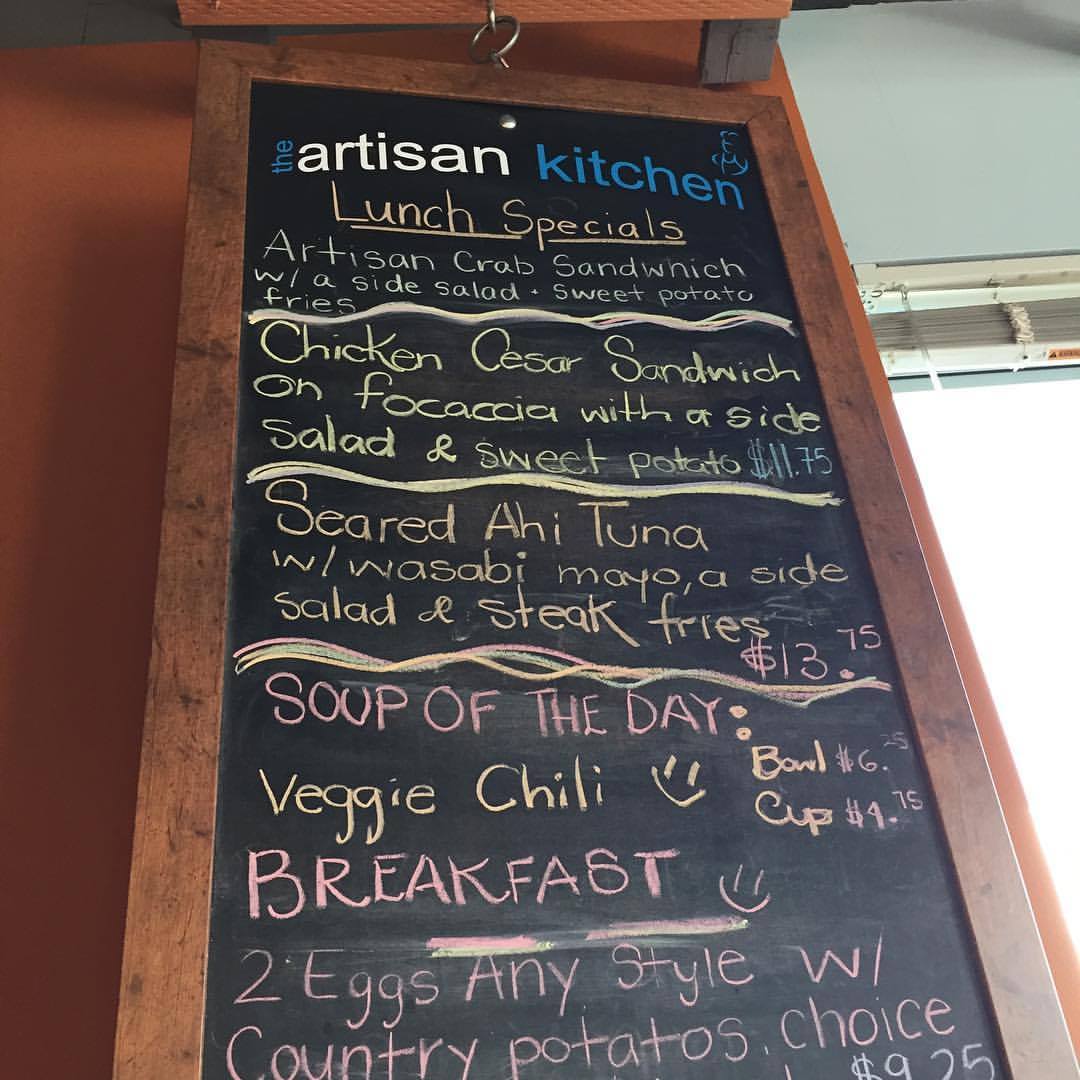 the artisan kitchen
Lunch Specials
Artisan Crab Sandwhich
w/ a side salad · sweet potato
fries
Chicken Cesar Sandwich
on focaccia with a side
salad & sweet potato $11.75
Seared Ahi Tuna
w/ wasabi mayo, a side
salad & steak fries
$13.75
SOUP OF THE DAY:
Bowl $6.25
Veggie Chili
Cup $4.75
BREAKFAST
2 Eggs Any Style w/
Country potatos, choice
$9.25